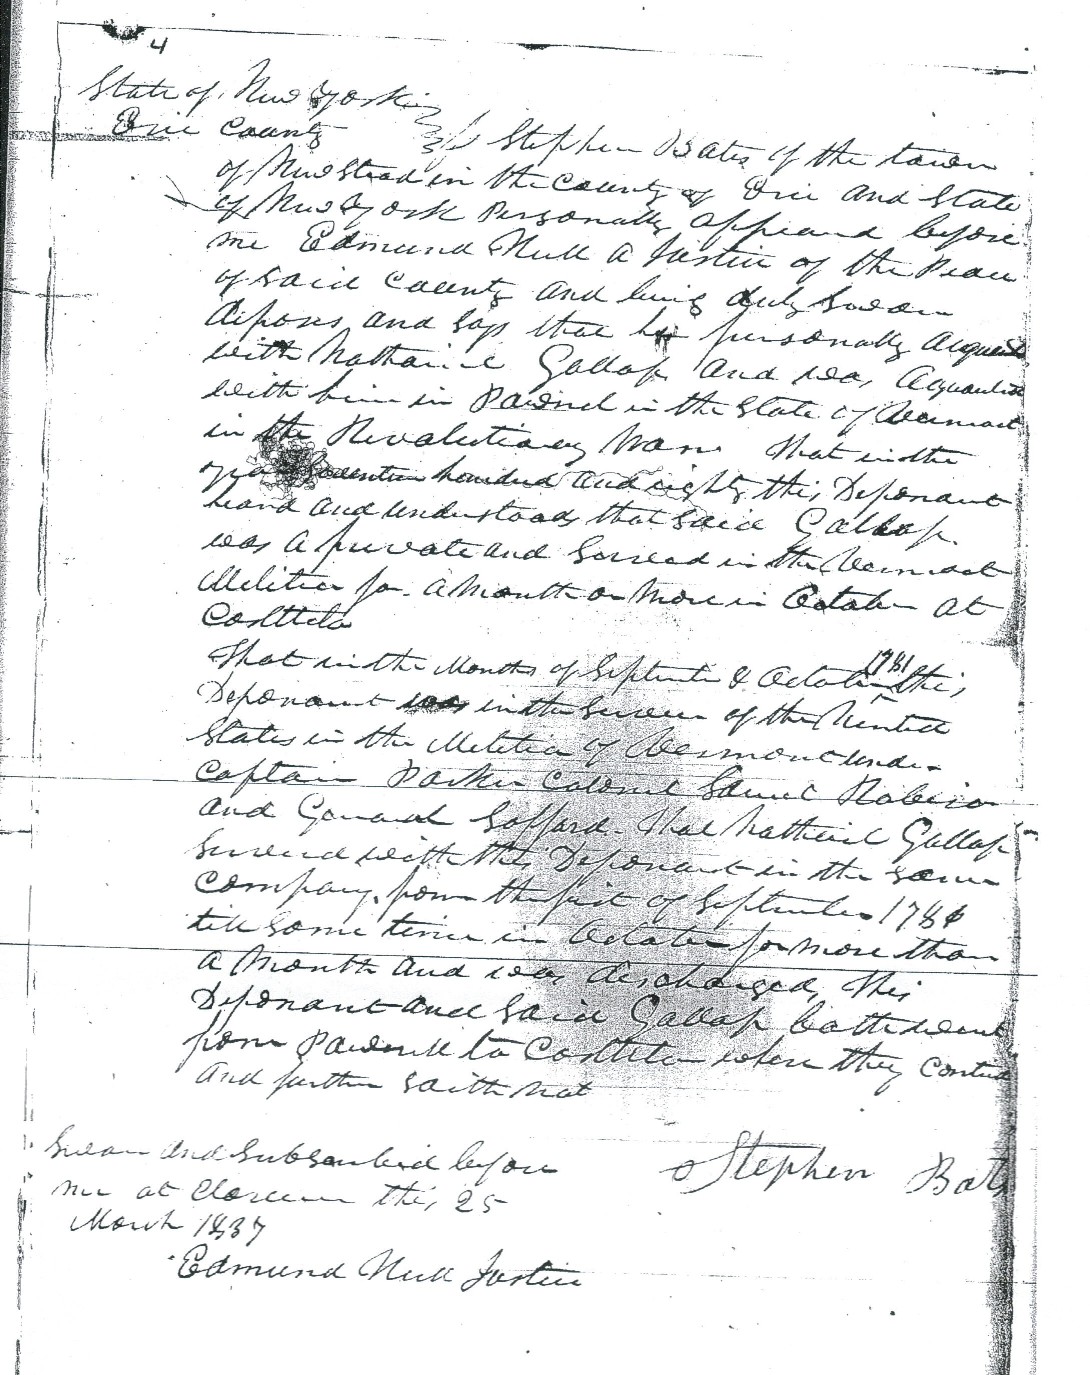 4
State of New York
Erie County ss Stephen Bates of the town
of Newstead in the County of Erie and State
of New York Personally appeard before
me Edmund Hull a Justice of the Peace
of Said County and being duly Sworn
deposes and Says that he personally Acquaint
with Nathaniel Gallop And was Acquainted
with him in Pawnel in the State of Vermont
in the Revolutionary War That in the
year Seventeen hundred and eighty this Deponant
heard and understood that Said Gallop
was a private and Served in the Vermont
Militia for a Month or More in October at
Castleto
That in the Months of September & October 1781 this
Deponant was in the Service of the United
States in the Militia of Vermont under
Captain Parker Colonel Samuel Robinson
and General Safford. That Nathaniel Gallop
Served with this Deponant in the same
Company from the first of September 1781
till Some time in October for more than
a Month and was discharged, this
Deponant and Said Gallop both went
from Pawnell to Castleton where they
and further Saith Not
Sworn and Subscribed before
me at Clarence this 25
March 1837
Stephen Bates
Edmund Hull Justice